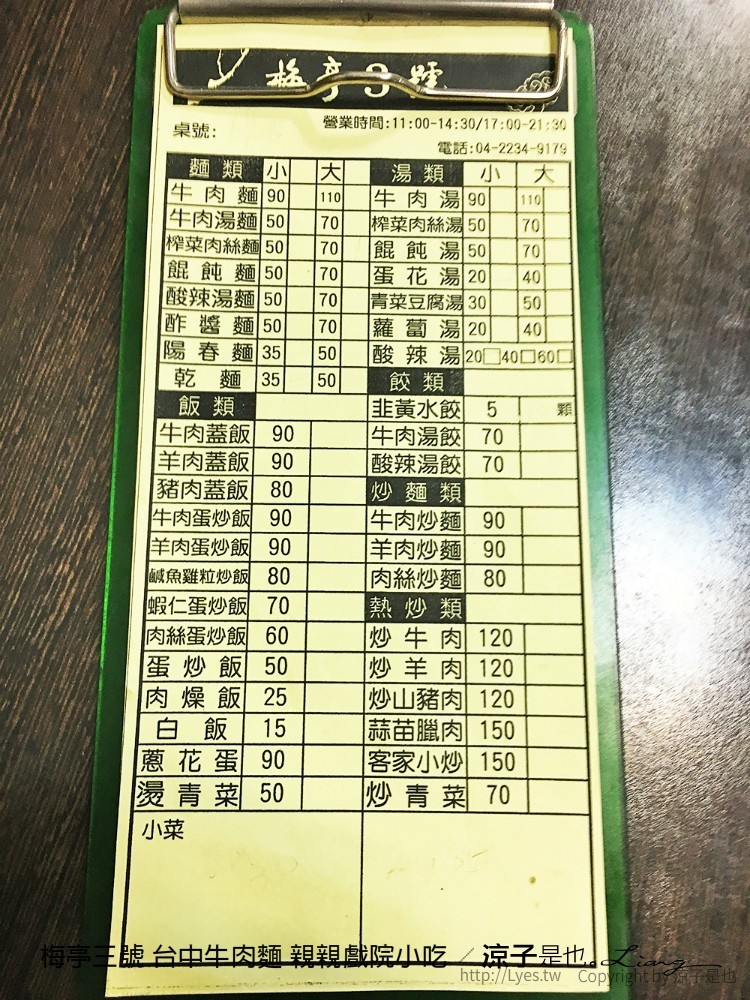 梅亭3號
營業時間:11:00-14:30/17:00-21:30
桌號:
電話:04-2234-9179
麵類 小 大 湯類 小 大
牛肉麵 90 110 牛肉湯 90 110
牛肉湯麵 50 70 榨菜肉絲湯 50 70
榨菜肉絲麵 50 70 餛飩湯 50 70
餛飩麵 50 70 蛋花湯 20 40
酸辣湯麵 50 70 青菜豆腐湯 30 50
酢醬麵 50 70 蘿蔔湯 20 40
陽春麵 35 50 酸辣湯 20□40□60□
乾麵 35 50 餃類
飯類 韭黃水餃 5 顆
牛肉蓋飯 90 牛肉湯餃 70
羊肉蓋飯 90 酸辣湯餃 70
豬肉蓋飯 80 炒麵類
牛肉蛋炒飯 90 牛肉炒麵 90
羊肉蛋炒飯 90 羊肉炒麵 90
鹹魚雞粒炒飯 80 肉絲炒麵 80
蝦仁蛋炒飯 70 熱炒類
肉絲蛋炒飯 60 炒牛肉 120
蛋炒飯 50 炒羊肉 120
肉燥飯 25 炒山豬肉 120
白飯 15 蒜苗臘肉 150
蔥花蛋 90 客家小炒 150
燙青菜 50 炒青菜 70
小菜
梅亭三號 台中牛肉麵 親親戲院小吃 / 涼子是也 Liang
http://Lyes.tw Copyright by 涼子是也